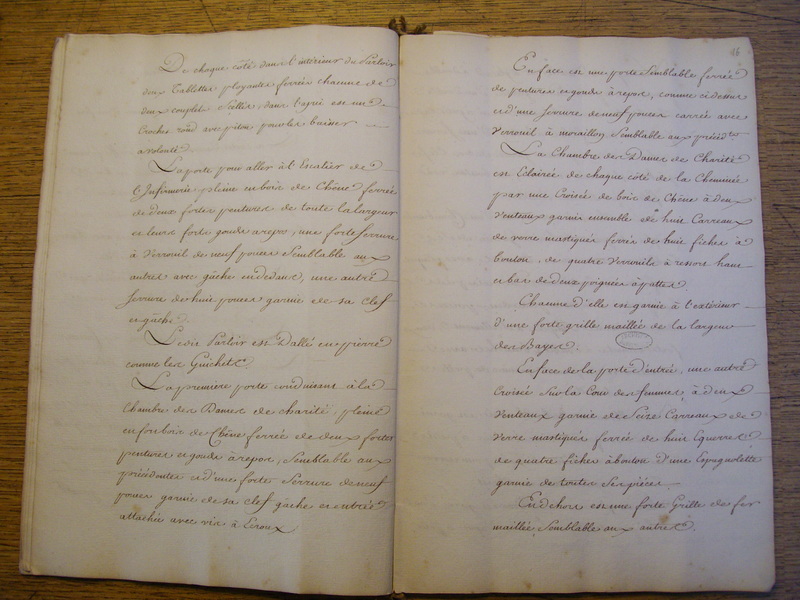 De chaque côté dans l'intérieur du Parloir
deux Tablettes ployantes ferrée chacune de
deux couplets. Sceller dans l'apui est un
Crochet rond avec piton pour les baisser
a volonté.
La porte pour aller à l'Escalier de
l'Infirmerie, pleine en bois de Chêne ferrée
de deux fortes pentures de toute la largeur
et leurs forts gonds a repos, une forte serrure
à verrouil de neuf pouces Semblable aux
autres avec gâche en dedans, une autre
serrure de huit pouces garnie de sa clef
et gâche.
Ledit Parloir est Dallé en pierre
comme les Guichets.
La première porte conduisant à la
Chambre des Dames de charité, pleine
en fort bois de Chêne ferrée de deux fortes
pentures et gonds à repos, Semblable aux
précédentes et d'une forte Serrure de neuf
pouces garnie de sa clef gâche et entrée
attachée avec vis à Ecroux
16
En face est une porte Semblable ferrée
de pentures et gonds à repos, comme ci dessus
et d'une serrure de neuf pouces carrée avec
Verrouil à moraillon, Semblable aux précédtes
La Chambre des Dames de Charité
est Eclairée de chaque côté de la Cheminée
par une Croisée de bois de Chêne à deux
Venteaux garnis ensemble de huit Carreaux
de verre mastiqués ferrés de huit fiches à
bouton, de quatre Verrouils à ressort haut
et bas de deux poignées à pattes.
Chacune d'elle est garnie à l'extérieur
d'une forte grille maillée de la largeur
des Bayes.
En face de la porte d'entrée, une autre
Croisée Sur la Cour des femmes, à deux
Venteaux garnie de Seize Carreaux de
Verre mastiqués ferrée de huit Equerres
de quatre fiches à bouton d'une Espagnolette
garnie de toutes Ses pièces.
En dehors est une forte Grille de fer
maillée, Semblable aux autres.